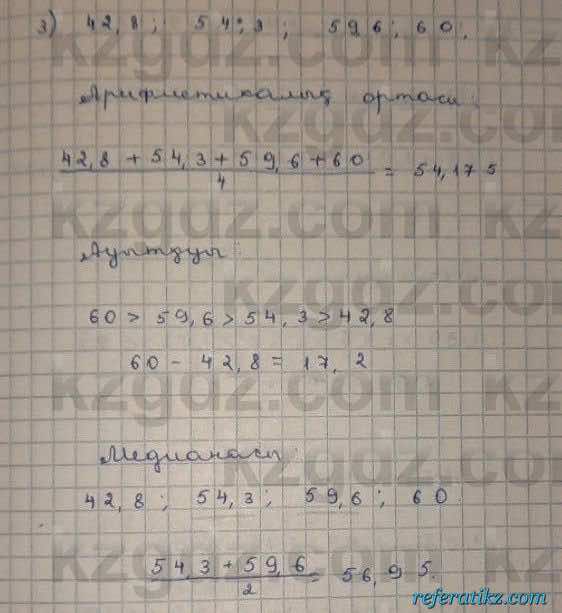 3) 42,8; 54,3; 59,6; 60.
Арифметикалық ортасы:
42,8 + 54,3 + 59,6 + 60
4
= 54,175
Ауытқуы:
60 > 59,6 > 54,3 > 42,8
60 - 42,8 = 17,2
Медианасы:
42,8; 54,3; 59,6; 60
54,3 + 59,6
2
= 56,95.
kzgdz.com
referatikz.com